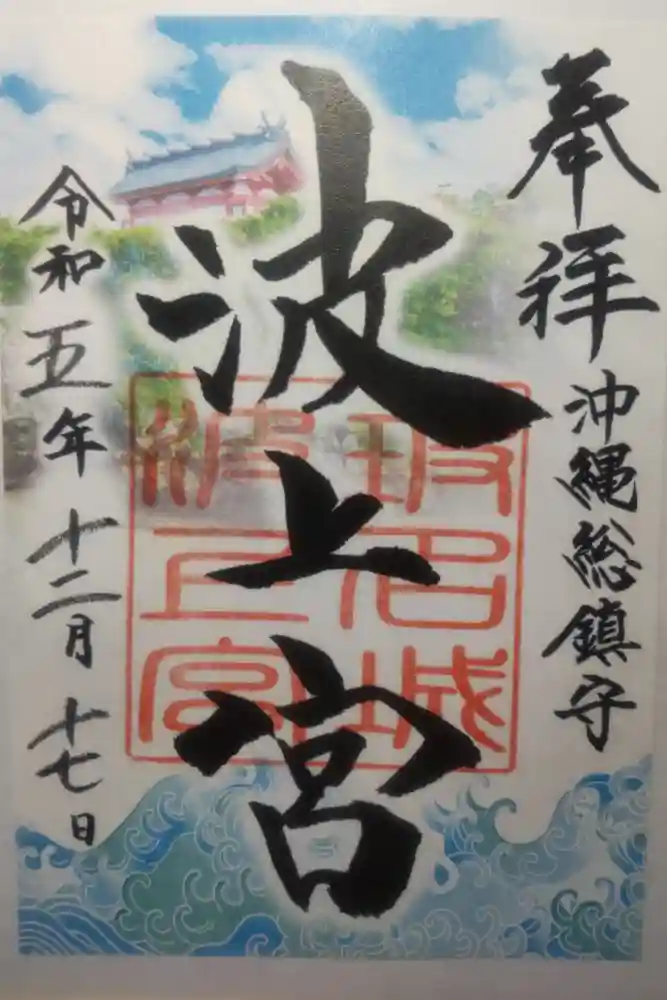 奉拝 沖縄総鎮守
波上宮
令和五年十二月十七日
波上宮